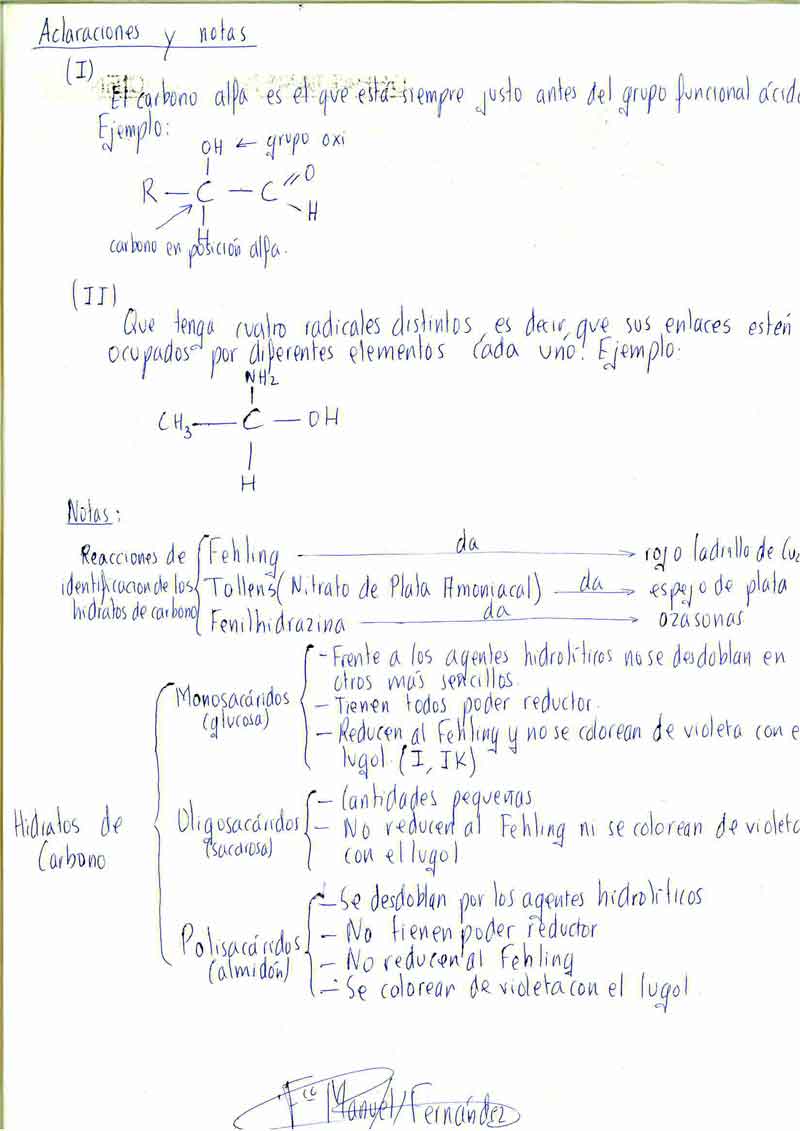 Aclaraciones y notas
(I)
El carbono alfa es el que está siempre justo antes del grupo funcional ácid
Ejemplo:
OH ← grupo oxi
R — C — C = O
H
H
carbono en posición alfa.
(II)
Que tenga cuatro radicales distintos, es decir, que sus enlaces estén
ocupados por diferentes elementos cada uno. Ejemplo:
NH2
CH3 — C — OH
H
Notas:
Reacciones de
identificacion de los
hidratos de carbono
Fehling → da → rojo ladrillo de Cu2
Tollens (Nitrato de Plata Amoniacal) — da → espejo de plata
Fenilhidrazina — da → ozasonas
Hidratos de
Carbono
Monosacáridos
(glucosa)
- Frente a los agentes hidrolíticos no se desdoblan en
otros más sencillos.
- Tienen todos poder reductor.
- Reducen al Fehling y no se colorean de violeta con e
lugol. (I, IK)
Oligosacáridos
(sacarosa)
- Cantidades pequeñas
- No reducen al Fehling ni se colorean de violeta
con el lugol
Polisacáridos
(almidón)
- Se desdoblan por los agentes hidrolíticos
- No tienen poder reductor
- No reducen al Fehling
- Se colorean de violeta con el lugol
Fco Manuel Fernández